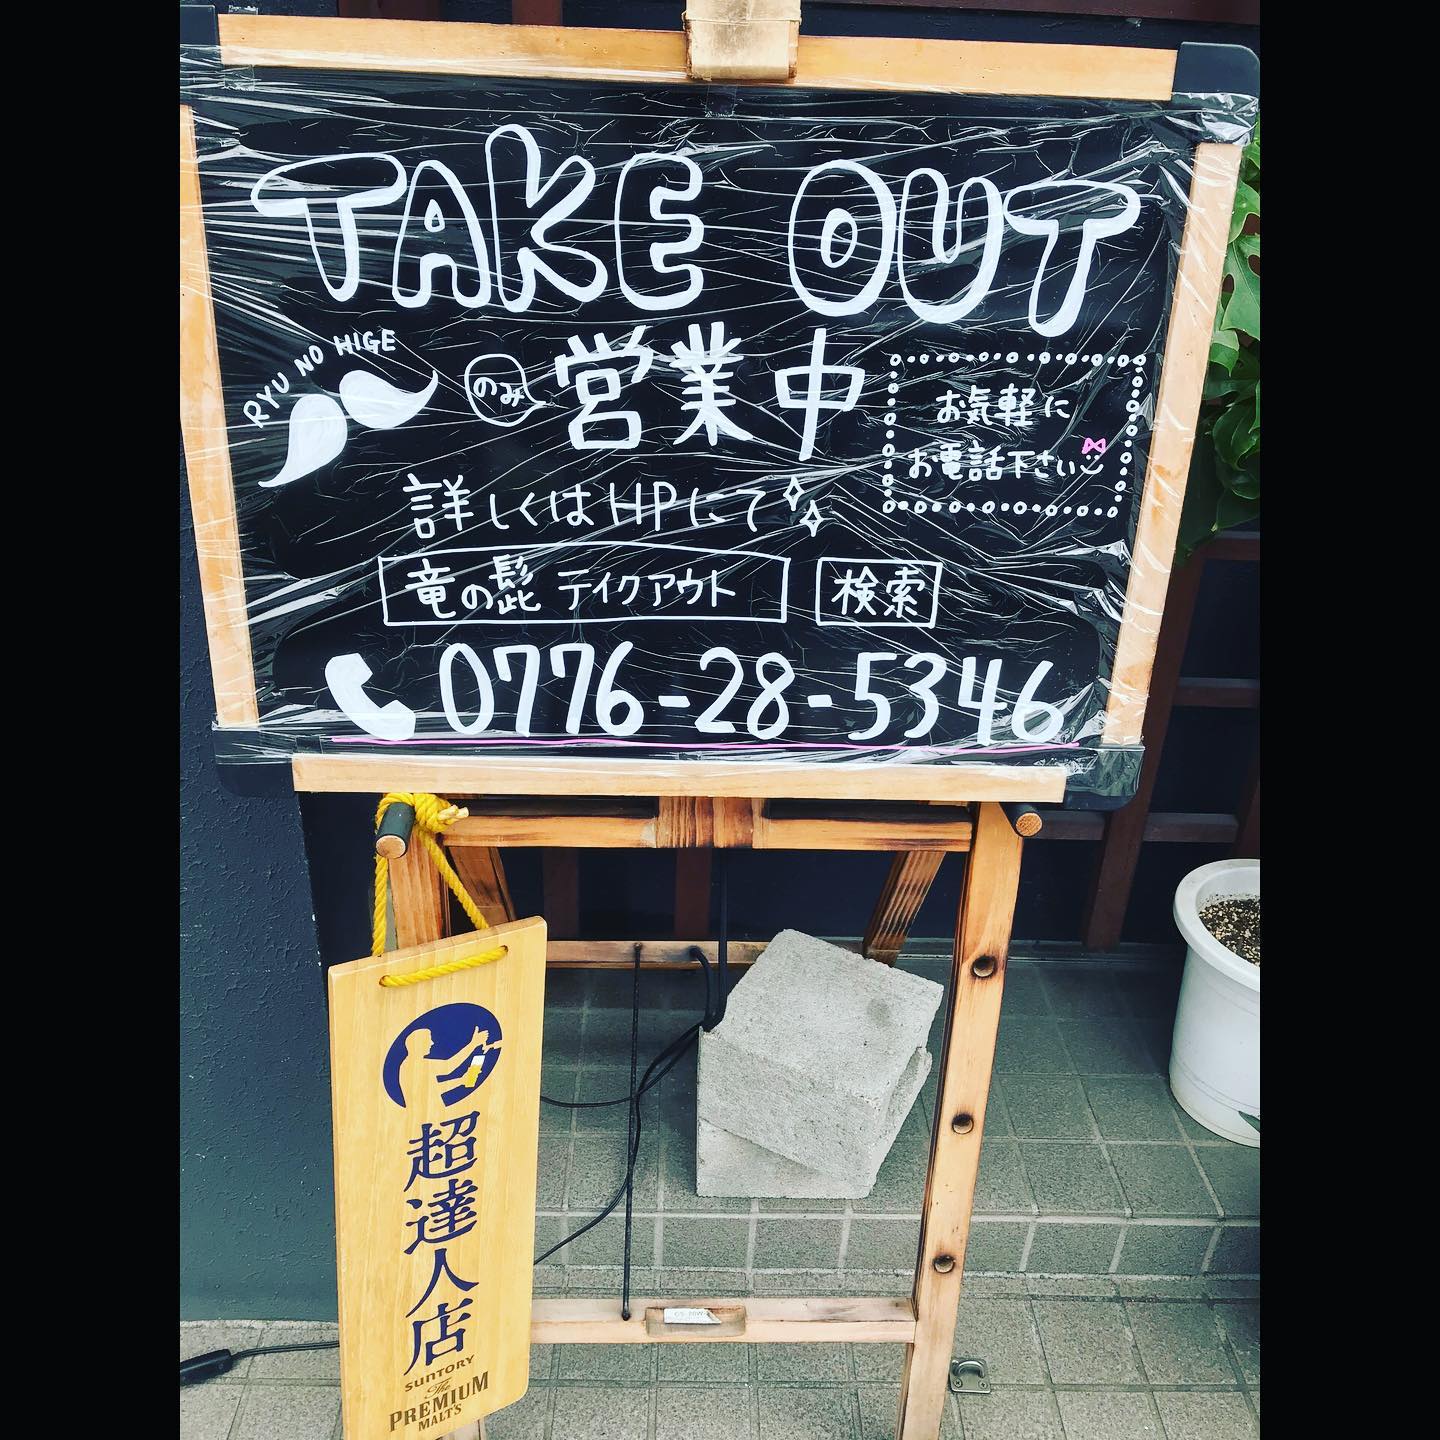 TAKE OUT
RYU NO HIGE
のみ 営業中
お気軽に
お電話下さい
詳しくはHPにて
竜の髭 テイクアウト 検索
0776-28-5346
超達人店
SUNTORY
The
PREMIUM
MALT'S